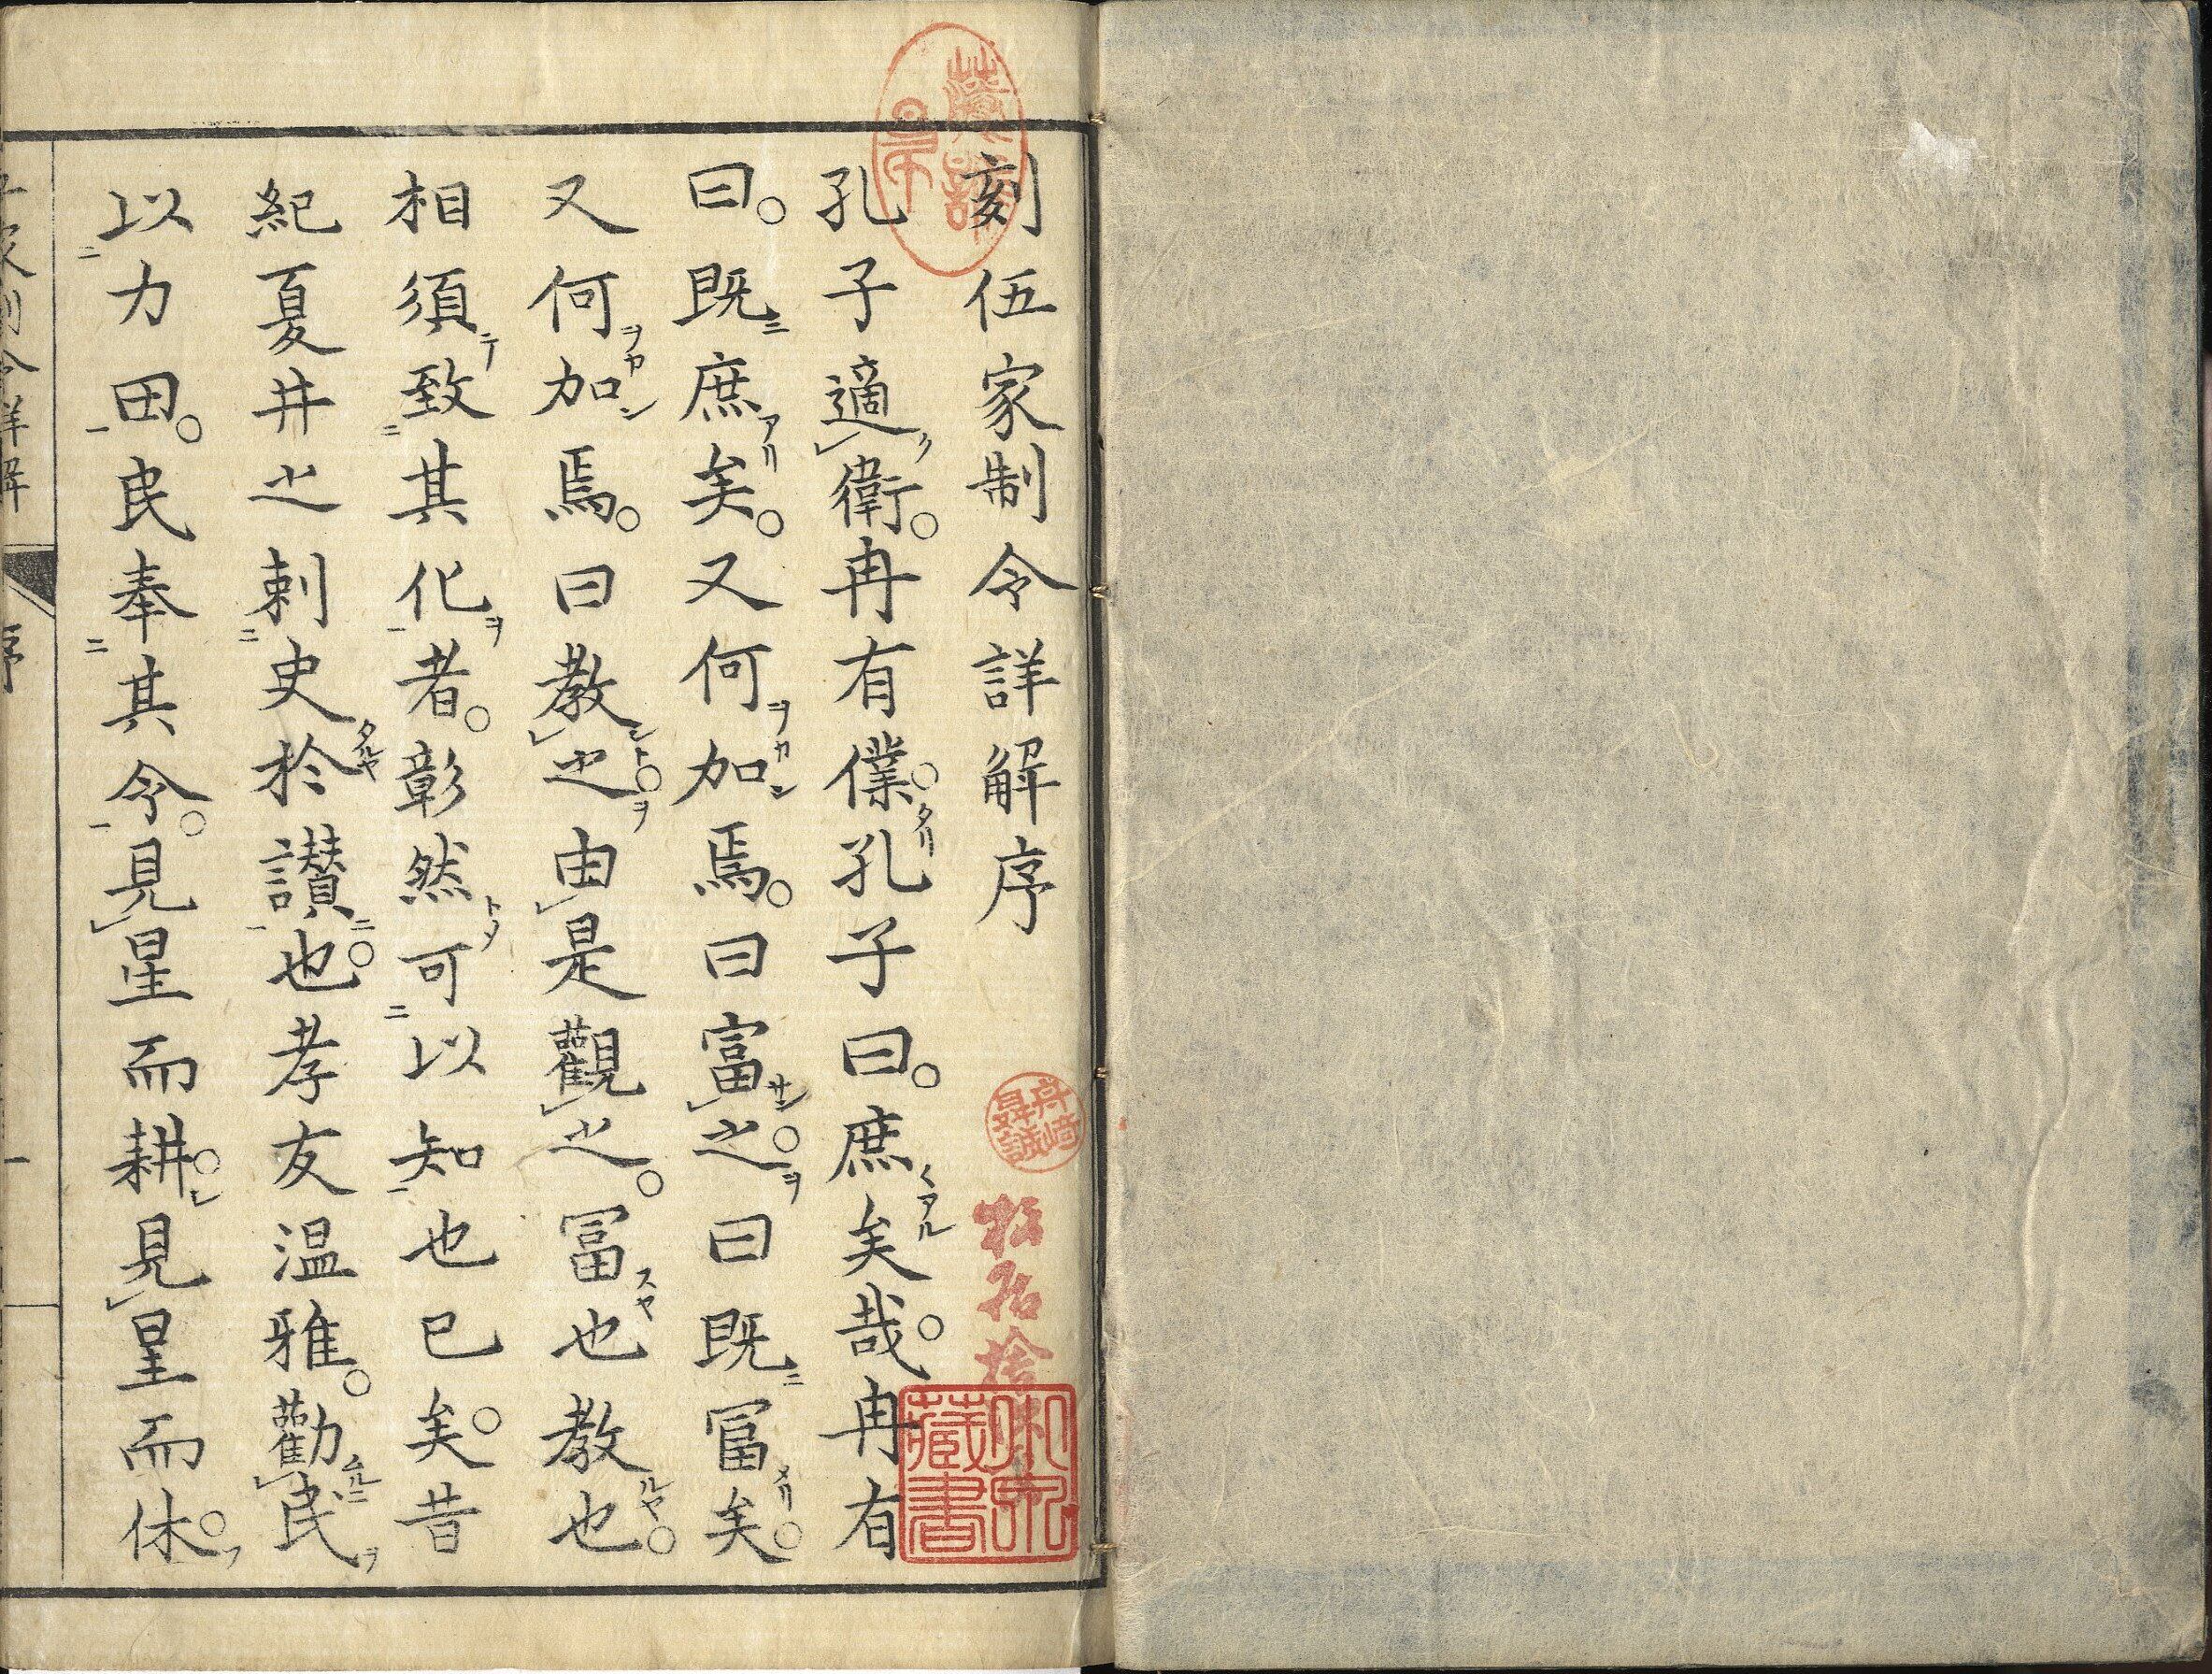 刻伍家制令詳解序
孔子適衛。冉有僕。孔子曰。庶矣哉。冉有
曰。既庶矣。又何加焉。曰富之。曰既冨矣。
又何加焉。曰教之。由是觀之。冨也教也。
相須致其化者。彰然可以知也已矣。昔
紀夏井之刺史於讃也。孝友温雅。勸民
以力田。民奉其令。見星而耕。見星而休。
序
一
舟﨑
藏書